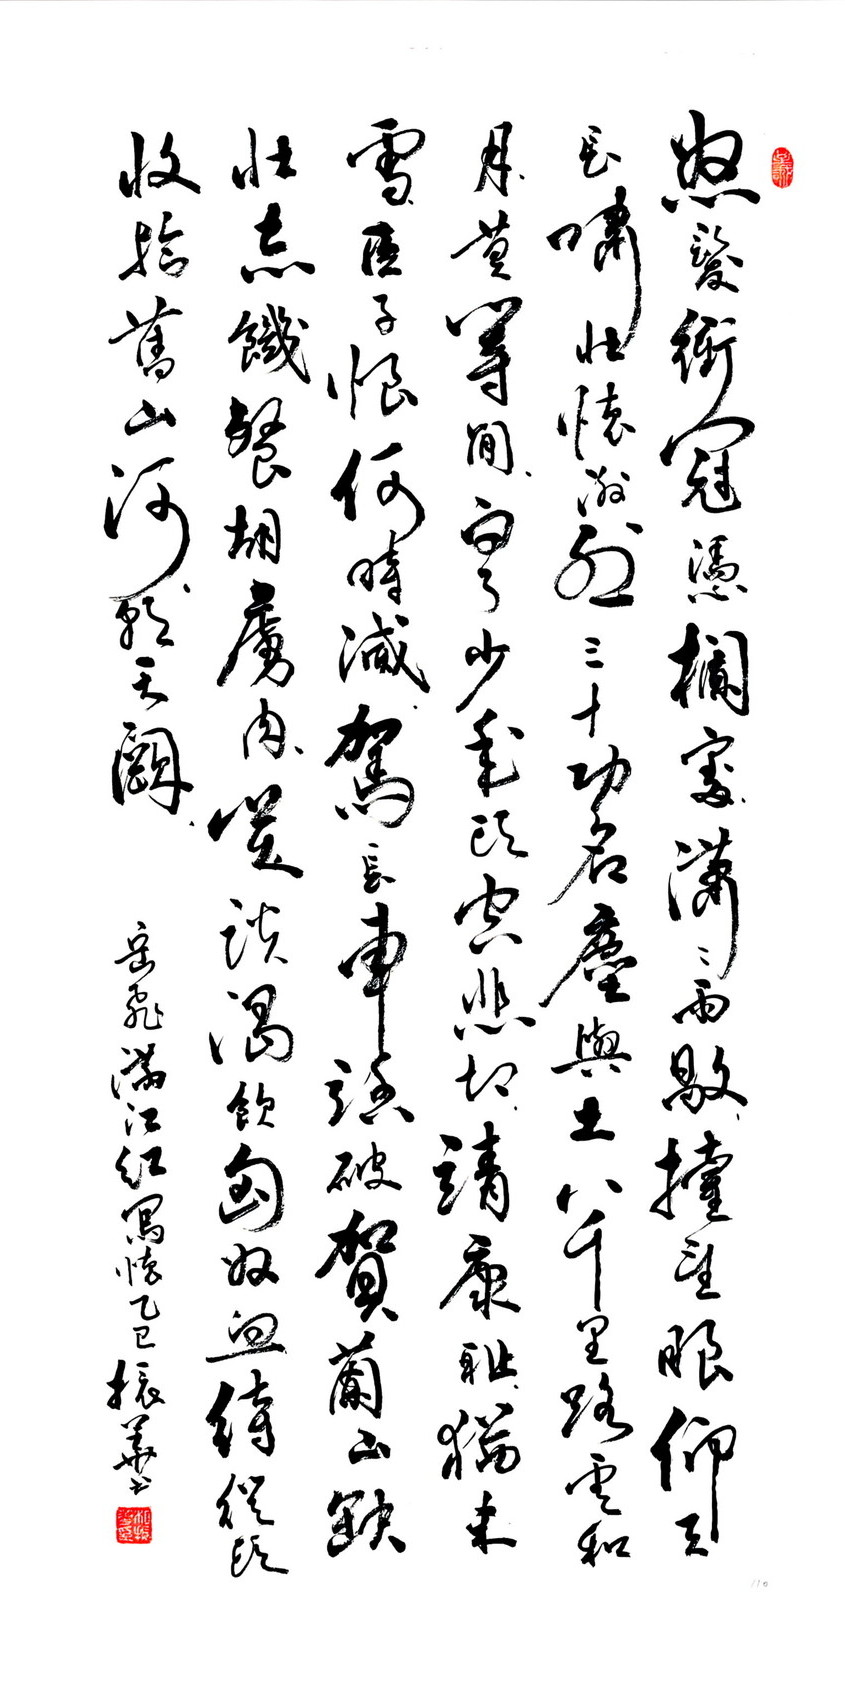 怒髮衝冠憑欄處瀟々雨歇擡望眼仰天
長嘯壯懷激烈三十功名塵與土八千里路雲和
月莫等閒白了少年頭空悲切靖康耻猶未
雪臣子恨何時滅駕長車踏破賀蘭山缺
壯志饑餐胡虜肉笑談渴飲匈奴血待從頭
收拾舊山河朝天闕
岳飛滿江紅寫懷乙巳振華书